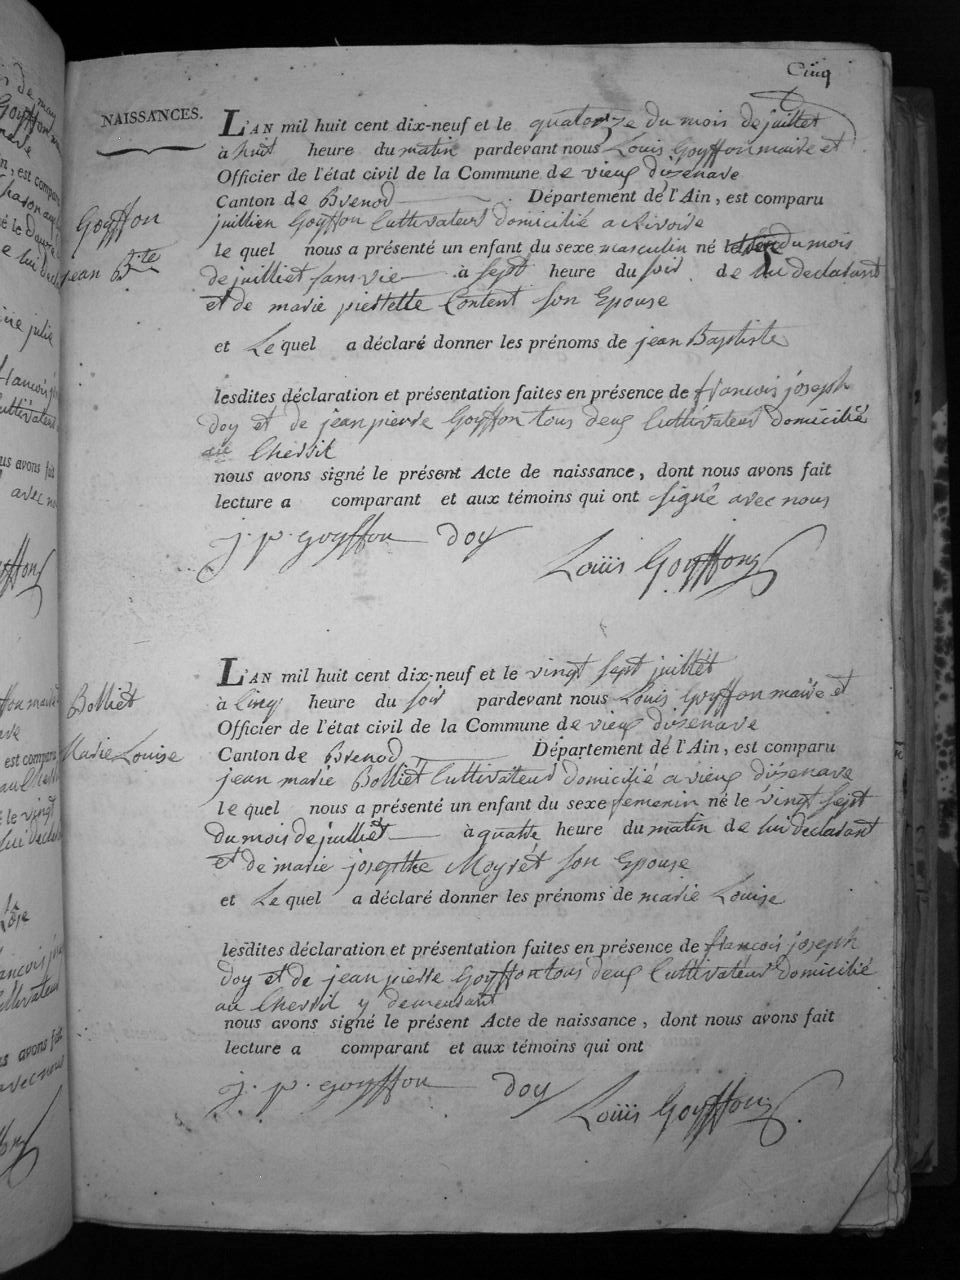 Cinq
NAISSANCES.
L'AN mil huit cent dix-neuf et le quatorze du mois de juillet
à huit heure du matin pardevant nous Louis Goyffon maire et
Officier de l'état civil de la Commune de vieux disenave
Canton de Brenod Département de l'Ain, est comparu
Goyffon
jean Bte
juillien Goyffon Cultivateur domicilié a
le quel nous a présenté un enfant du sexe masculin né le du mois
de juilliet sans vie à sept heure du soir de lui declarant
et de marie pierrette Content son Epouse
et Le quel a déclaré donner les prénoms de jean Baptiste
lesdites déclaration et présentation faites en présence de francois joseph
doy et de jean pierre Goyffon tous deux Cultivateur domicilié
au Chevril
nous avons signé le présent Acte de naissance, dont nous avons fait
lecture a comparant et aux témoins qui ont signé avec nous
j. p. goyffon doy
Louiis Goyffon
L'AN mil huit cent dix-neuf et le vingt sept juillet
à Cinq heure du soir pardevant nous Louis Goyffon maire et
Officier de l'état civil de la Commune de vieux disenave
Canton de Brenod Département de l'Ain, est comparu
Bolliét
Marie Louise
jean marie Bolliét Cultivateur domicilié a vieux disenave
le quel nous a présenté un enfant du sexe femenin né le vingt sept
du mois de juilliet à quatre heure du matin de lui declarant
et de marie josephte Moyrét son Epouse
et Le quel a déclaré donner les prénoms de marie Louise
lesdites déclaration et présentation faites en présence de francois joseph
doy et de jean pierre Goyffon tous deux Cultivateur domicilié
au Chevril y demeurant
nous avons signé le présent Acte de naissance, dont nous avons fait
lecture a comparant et aux témoins qui ont
j. p. goyffon doy Louiis Goyffon